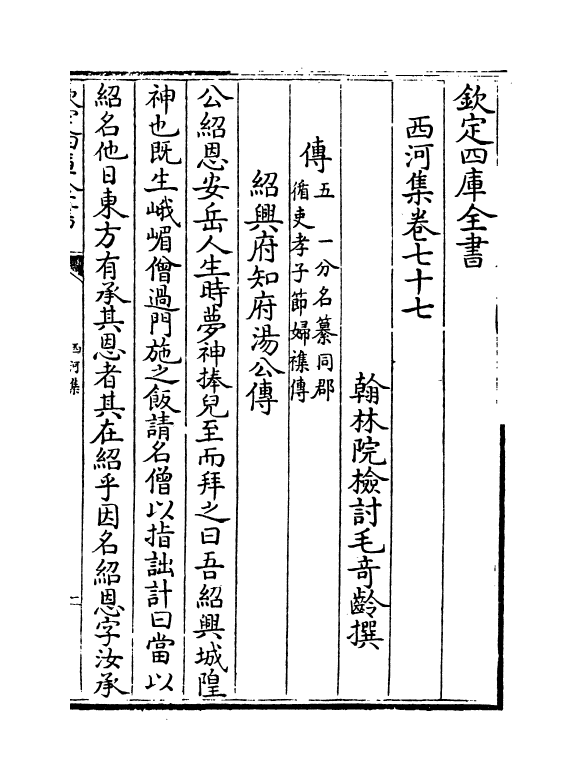 欽定四庫全書
西河集卷七十七
翰林院檢討毛奇齡撰
傳五 一分名纂同郡
循吏孝子節婦襍傳
紹興府知府湯公傳
公紹恩安岳人生時夢神捧兒至而拜之曰吾紹興城隍
神也既生峨嵋僧過門施之飯請名僧以指詘計曰當以
紹名他日東方有承其恩者其在紹乎因名紹恩字汝承
西河集